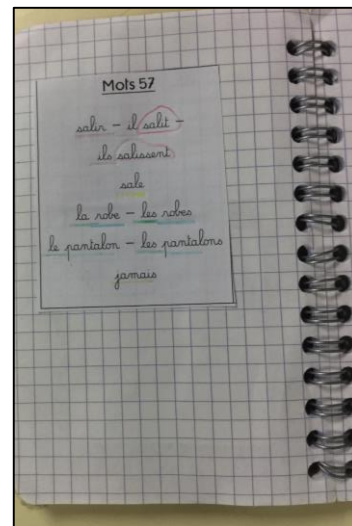 Mots 57
salir – il salit –
ils salissent
sale
la robe – les robes
le pantalon – les pantalons
jamais